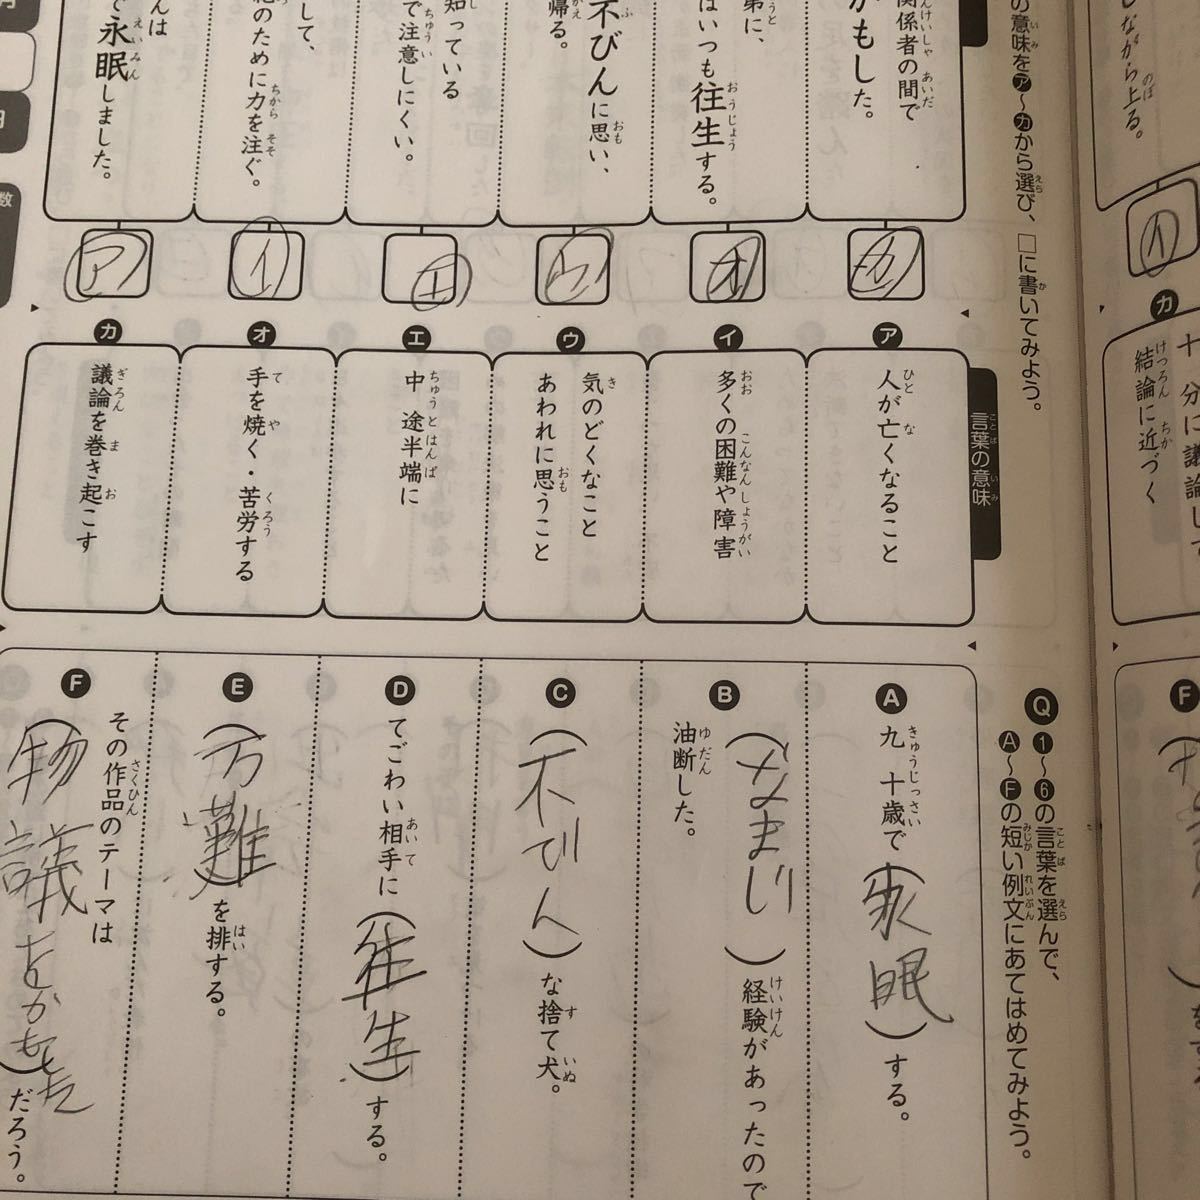 の意味をア〜カから選び、□に書いてみよう。
関係者の間で
かもした。
弟に、
はいつも往生する。
不びんに思い、
帰る。
知っている
で注意しにくい。
して、
のために力を注ぐ。
んは
で永眠しました。
カ
オ
ウ
エ
イ
ア
言葉の意味
ア
人が亡くなること
イ
多くの困難や障害
ウ
気のどくなこと
あわれに思うこと
エ
中途半端に
オ
手を焼く・苦労する
カ
議論を巻き起こす
Q
1〜6の言葉を選んで、
A〜Fの短い例文にあてはめてみよう。
A
九十歳で(永眠)する。
B
(なまじ)経験があったので
油断した。
C
(不びん)な捨て犬。
D
てごわい相手に(往生)する。
E
(万難)を排する。
F
その作品のテーマは
(物議をかもした)だろう。
しながら上る。
イ
カ
十分に議論して
結論に近づく
F
数